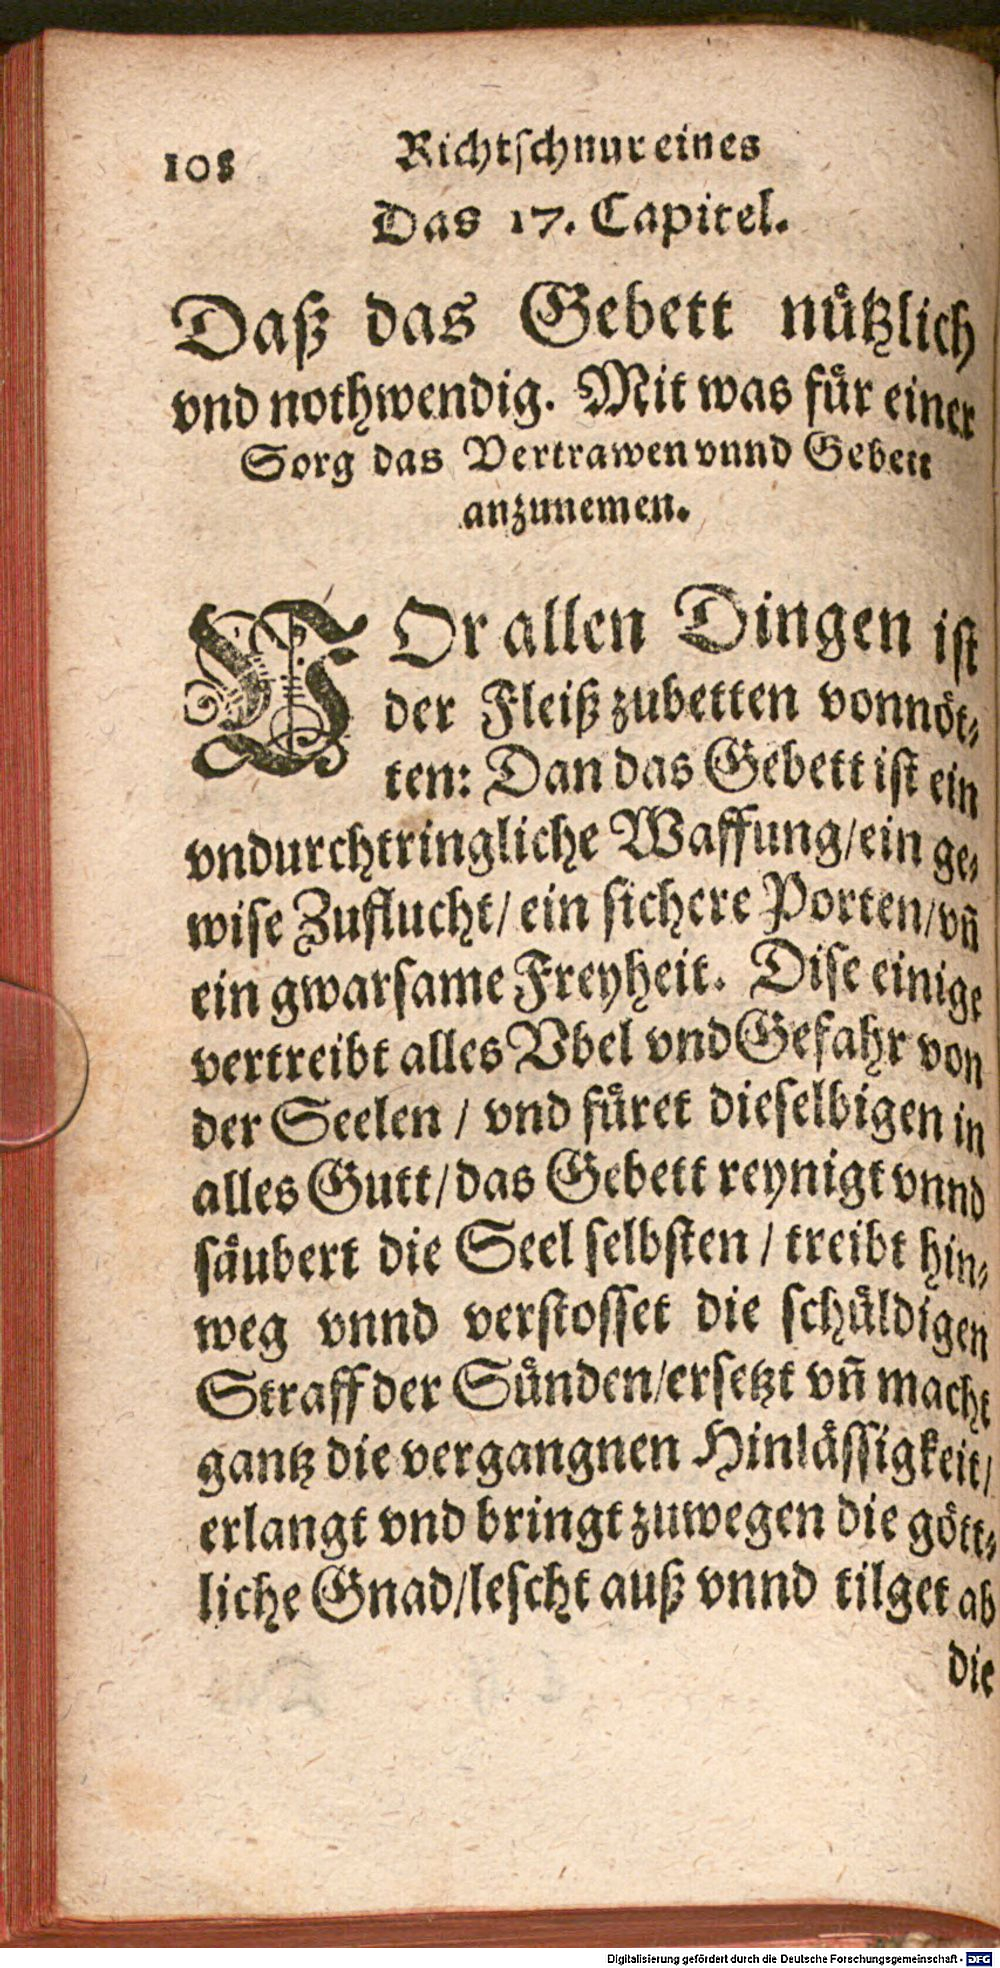 108 Richtschnur eines
Das 17. Capitel.
Daß das Gebett nützlich
vnd nothwendig. Mit was für einer
Sorg das Vertrawen vnnd Gebett
anzunemen.
VOr allen Dingen ist
der Fleiß zubetten vonnöt-
ten: Dan das Gebett ist ein
vndurchtringliche Waffung/ein ge-
wise Zuflucht/ ein sichere Porten/vñ
ein gwarsame Freyheit. Dise einige
vertreibt alles Vbel vnd Gefahr von
der Seelen / vnd füret dieselbigen in
alles Gutt/das Gebett reynigt vnnd
säubert die Seel selbsten / treibt hin-
weg vnnd verstosset die schüldigen
Straff der Sünden/ersetzt vñ macht
gantz die vergangnen Hinlässigkeit/
erlangt vnd bringt zuwegen die gött-
liche Gnad/lescht auß vnnd tilget ab
die
Digitalisierung gefördert durch die Deutsche Forschungsgemeinschaft - DFG